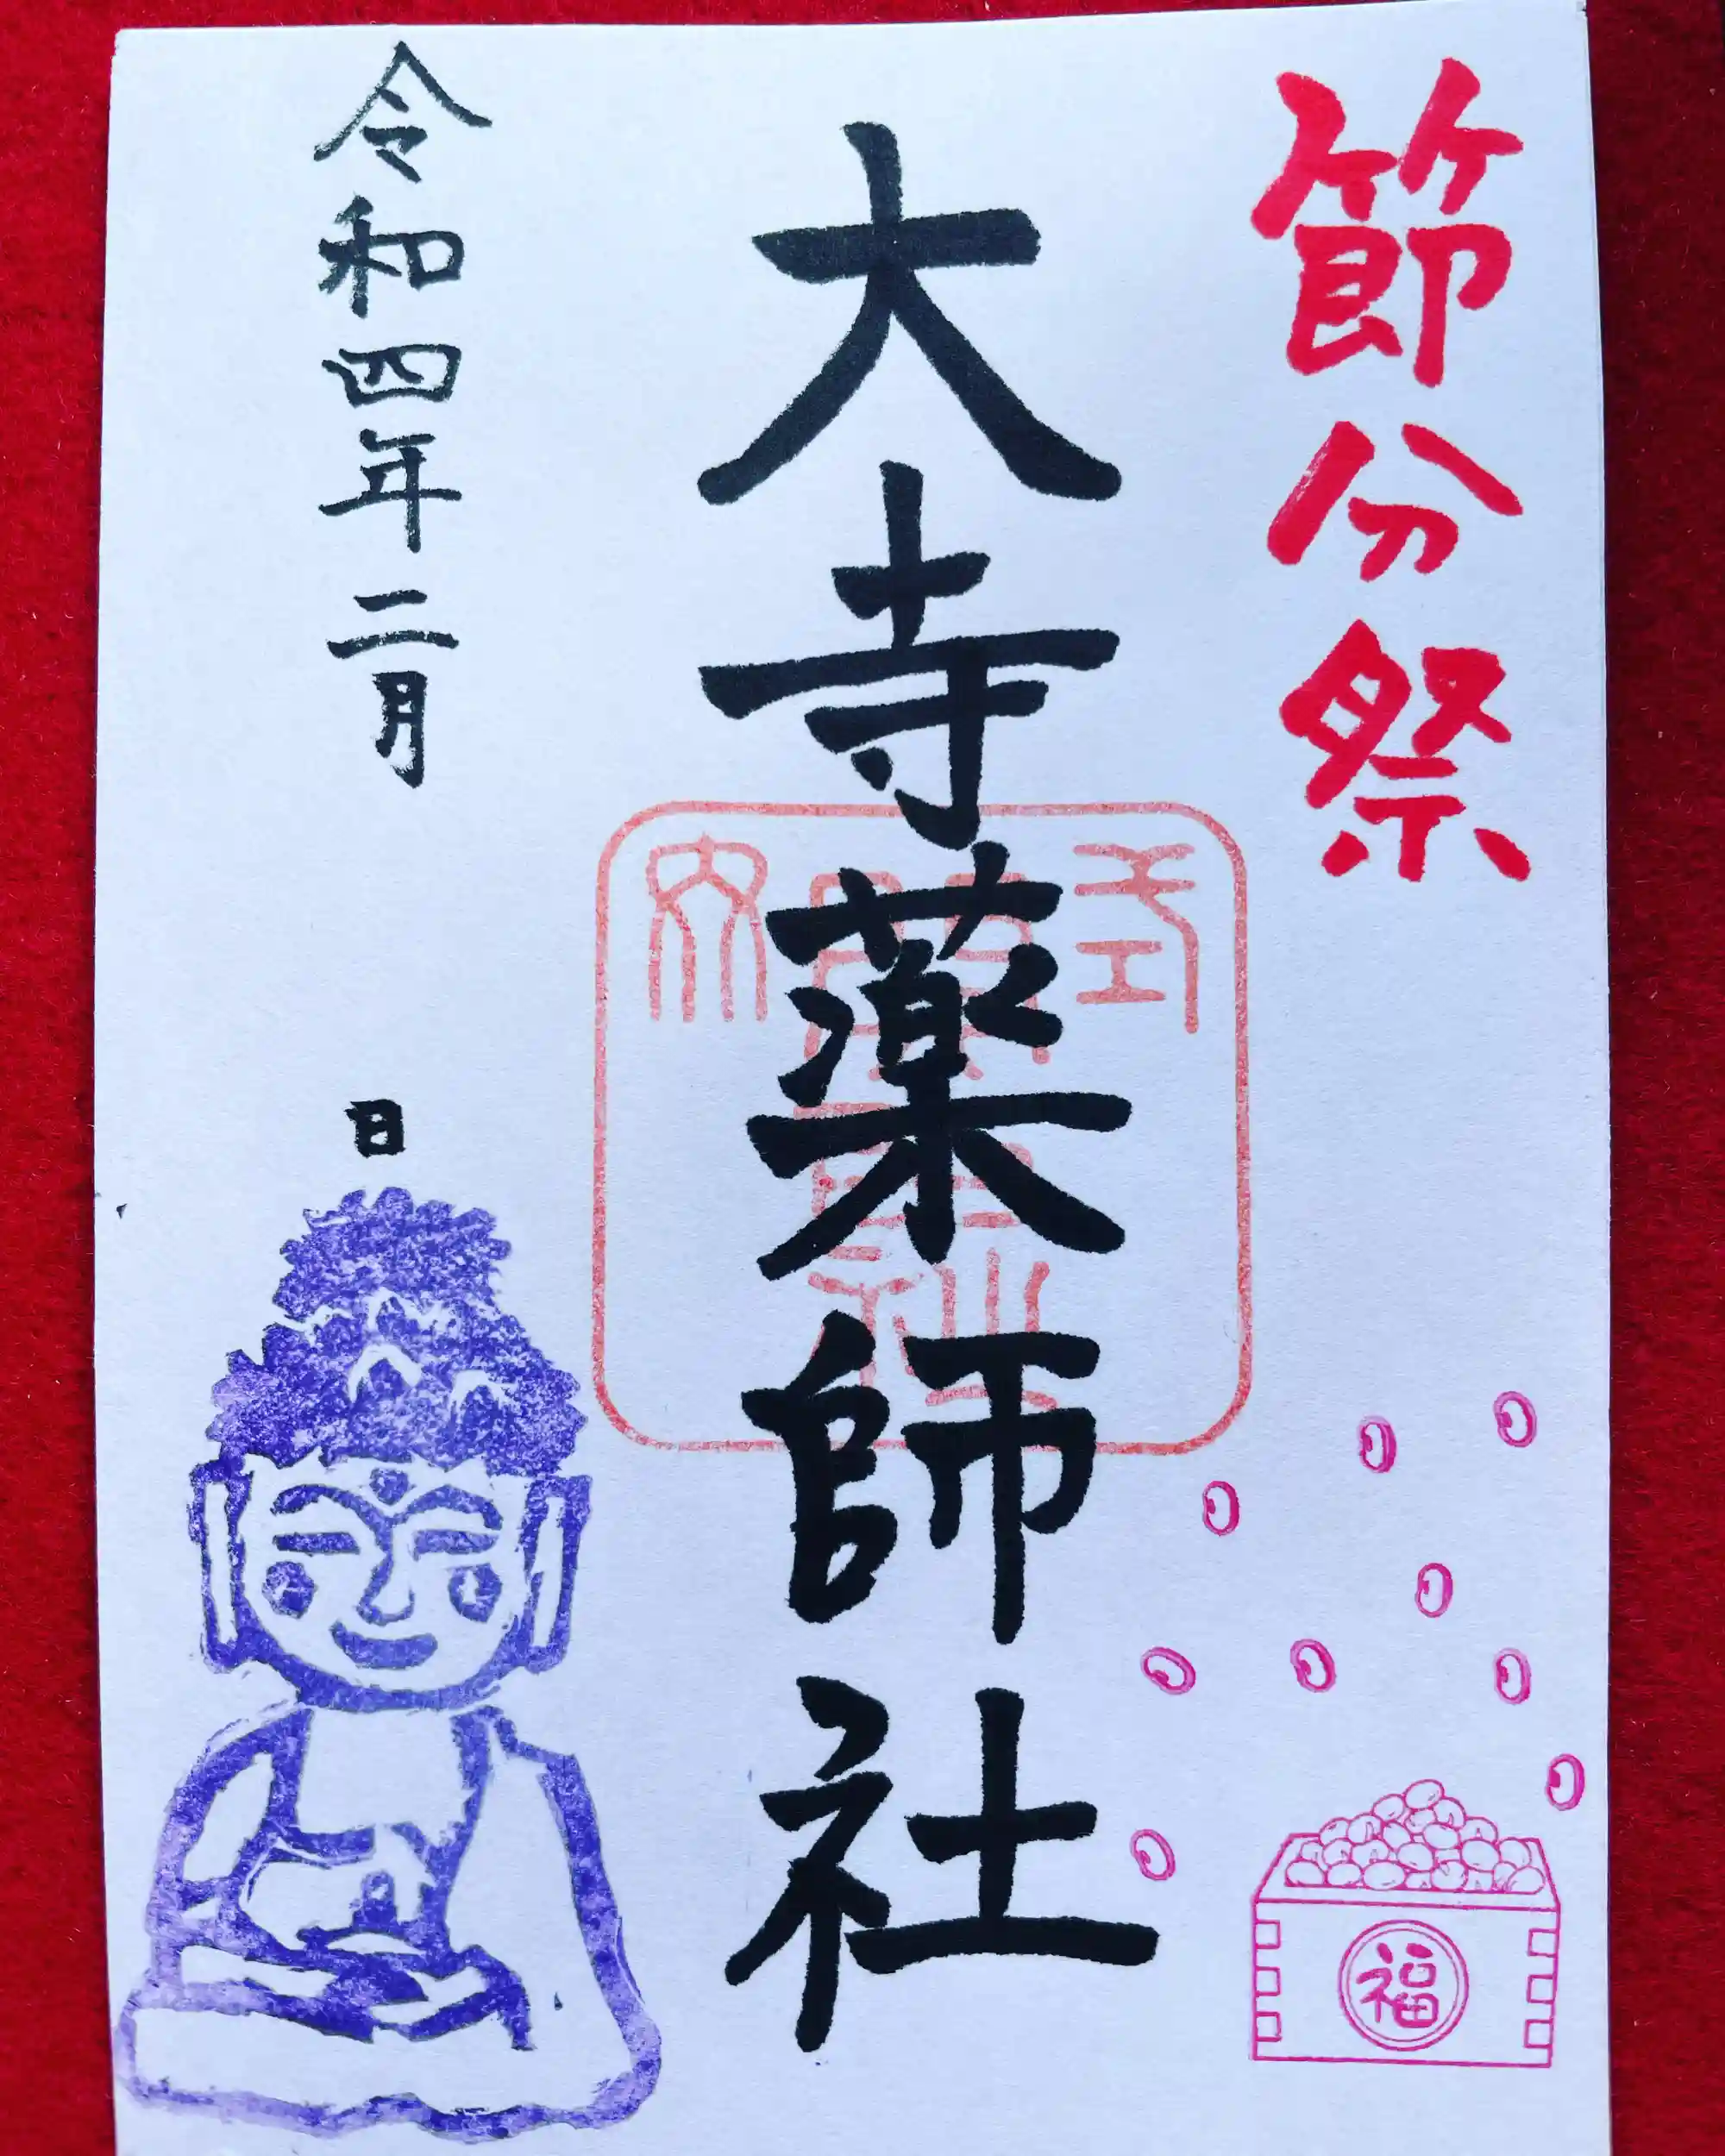 節分祭
大寺薬師社
令和四年二月 日
福